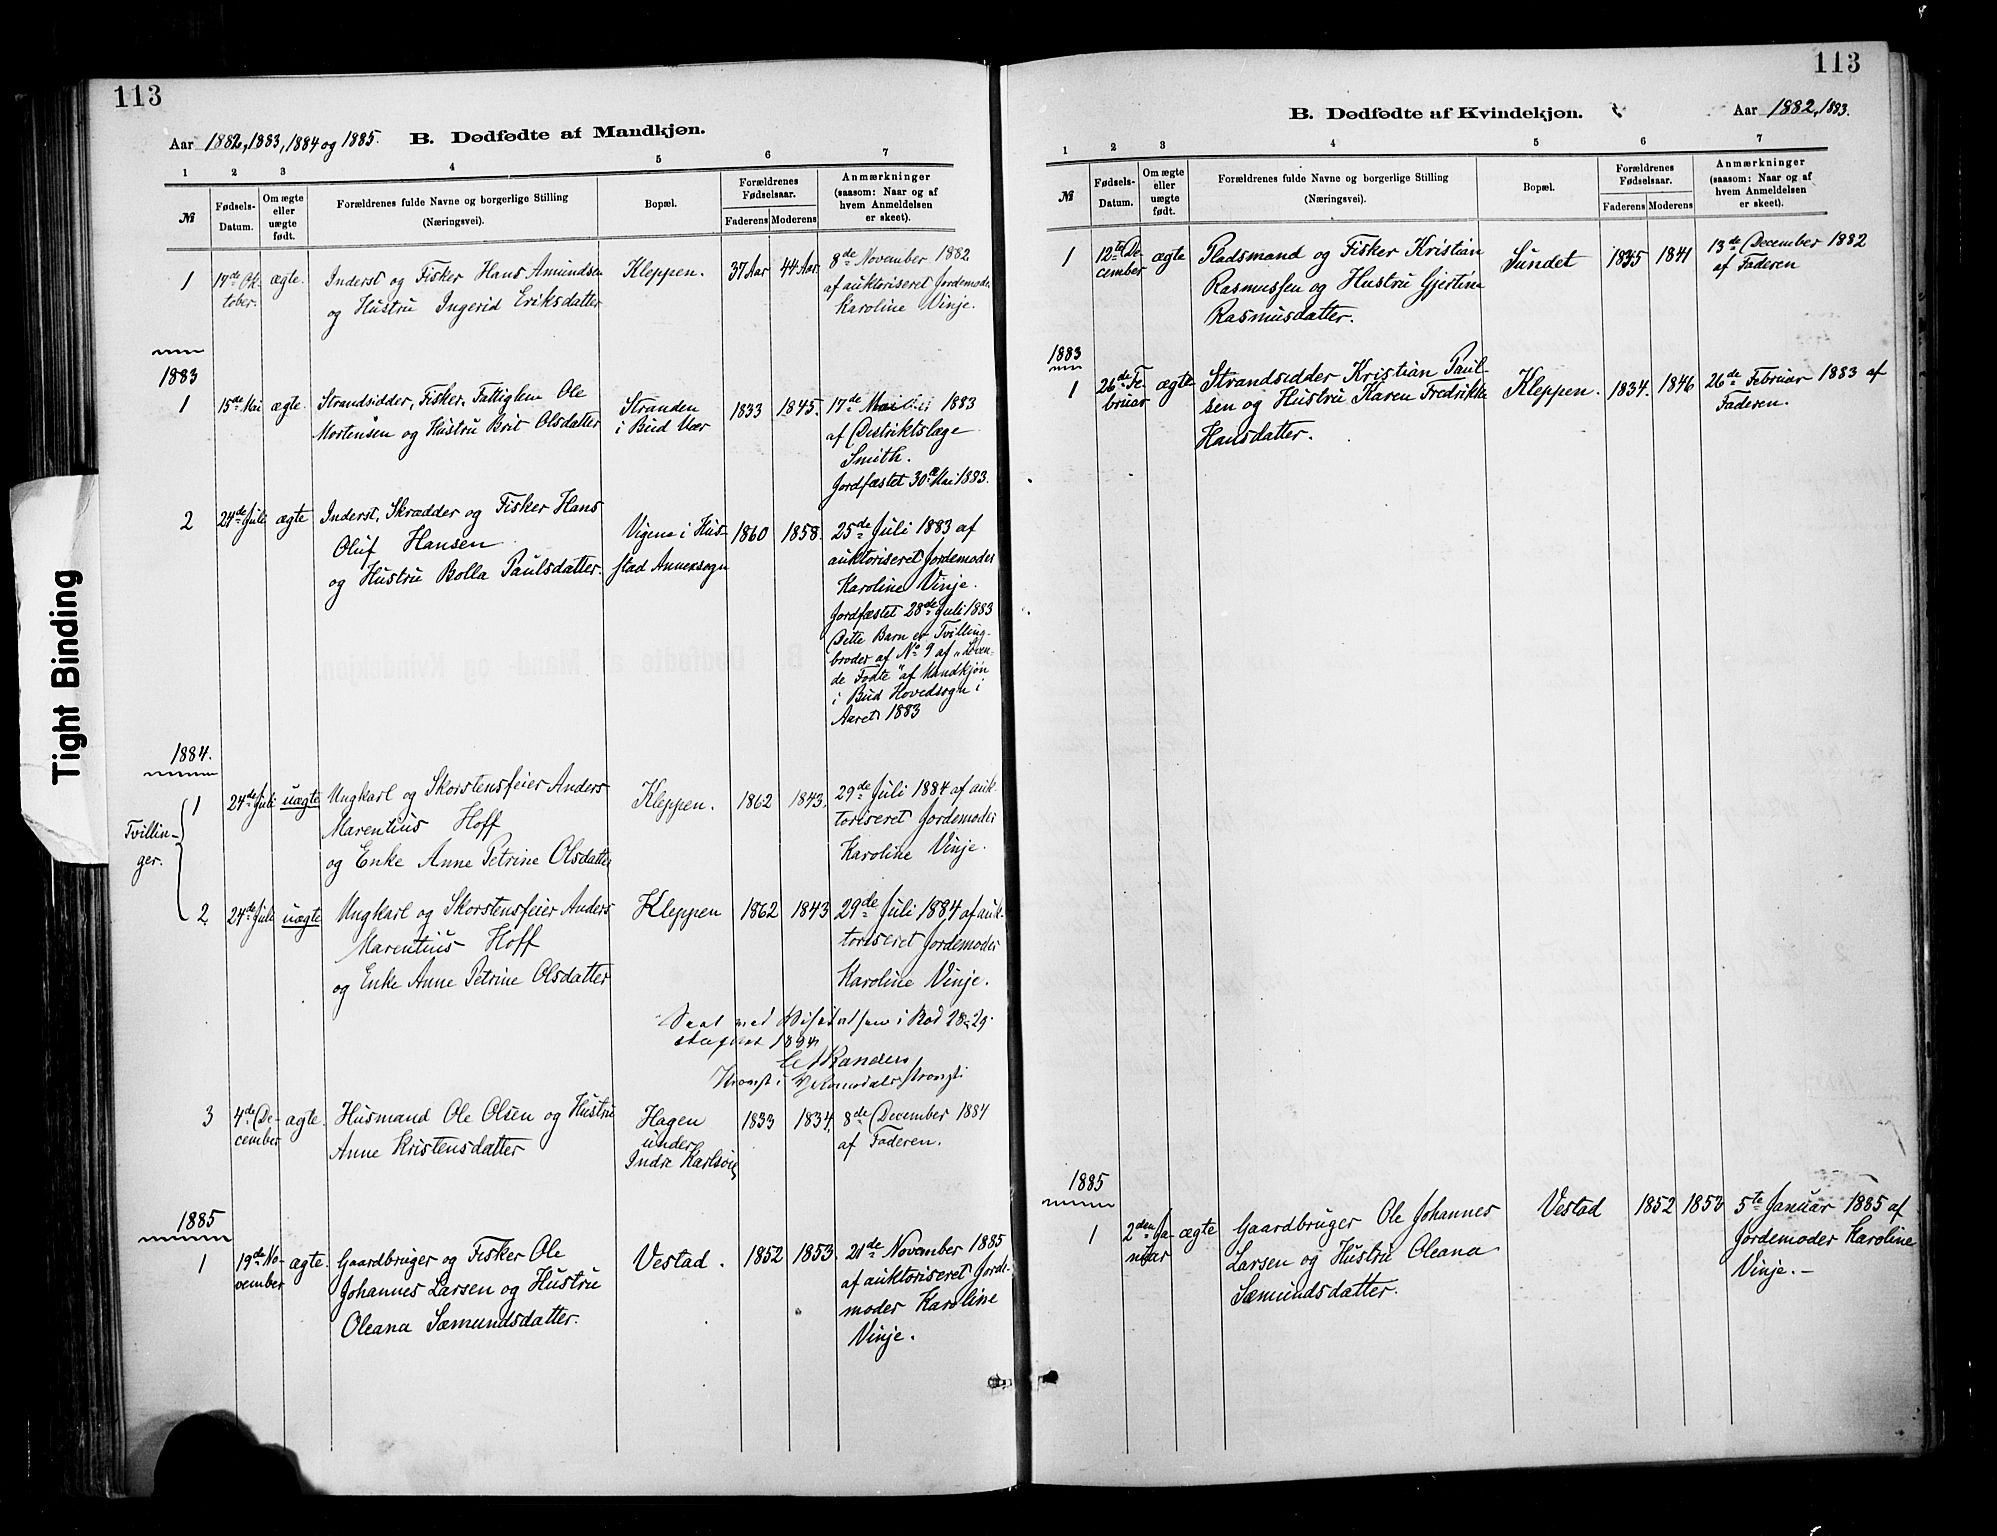 113
Aar 1882, 1883, 1884 og 1885. B. Dødfødte af Mandkjøn.
1 2 3 4 5 6 7
№ Fødsels-Datum. Om ægte eller uægte født. Forældrenes fulde Navne og borgerlige Stilling (Næringsvei). Bopæl. Forældrenes Fødselsaar. Faderens Moderens Anmærkninger (saasom: Naar og af hvem Anmeldelsen er skeet).
1 17de Ok- ægte. Inderst og Fisker Hans Amundsen Kleppen. 37 Aar 44 Aar 8de November 1882
tober. og Hustru Ingerid Eriksdatter af auktoriseret Jordemoder
Karoline Vinje.
1883
1 15de Mai ægte. Strandsidder, Fisker, Fattiglem Ole Stranden 1833 1845. 17de Mai 1883
Mortensen og Hustru Brit Olsdatter i Bud Vær af Distriktslæge
Smith.
Jordfæstet 30te Mai 1883.
2 24de Juli ægte Inderst, Skrædder og Fisker Hans Vigene i Hus- 1860 1858. 25de Juli 1883 af
Oluf Hansen stad Annexsogn auktoriseret Jordemoder
og Hustru Bolla Paulsdatter. Karoline Vinje.
Jordfæstet 28de Juli 1883
Dette Barn er Tvilling-
broder af No 9 af „Leven-
de Fødte" af Mandkjøn
i Bud Hovedsogn i
Aaret 1883
1884.
Tvillin-
ger.
1 24de Juli uægte Ungkarl og Skorstensfeier Anders Kleppen. 1862 1843. 29de Juli 1884 af auk-
Marentius Hoff toriseret Jordemoder
og Enke Anne Petrine Olsdatter Karoline Vinje.
2 24de Juli uægte Ungkarl og Skorstensfeier Anders Kleppen 1862 1843 29de Juli 1884 af auk-
Marentius Hoff toriseret Jordemoder
og Enke Anne Petrine Olsdatter Karoline Vinje.
i Rød 28-29
1884
3 4de De- ægte. Husmand Ole Olsen og Hustru Hagen 1833 1834. 8de December 1884
cember Anne Kristensdatter under af Faderen.
Indre Karlsøen
1885
1 19de No- ægte. Gaardbruger og Fisker Ole Vestad. 1852 1853. 21de November 1885
vember Johannes Larsen og Hustru af auktoriseret Jorde-
Oleana Sæmundsdatter. moder Karoline
Vinje.
Tight Binding
113
B. Dødfødte af Kvindekjøn. Aar 1882, 1883.
1 2 3 4 5 6 7
№ Fødsels-Datum. Om ægte eller uægte født. Forældrenes fulde Navne og borgerlige Stilling (Næringsvei). Bopæl. Forældrenes Fødselsaar. Faderens Moderens Anmærkninger (saasom: Naar og af hvem Anmeldelsen er skeet).
1 12te De- ægte Pladsmand og Fisker Kristian Sundet 1835 1841 13de December 1882
cember Rasmussen og Hustru Gjertine af Faderen
Rasmusdatter.
1883
1 26de Fe- ægte Strandsidder Kristian Paul- Kleppen. 1834. 1846 26de Februar 1883 af
bruar sen og Hustru Karen Fredrikke Faderen.
Hansdatter.
1885
1 2den Ja- ægte Gaardbruger Ole Johannes Vestad 1852 1853 5te Januar 1885 af
nuar Larsen og Hustru Oleana Jordemoder Karoline
Sæmundsdatter. Vinje.-